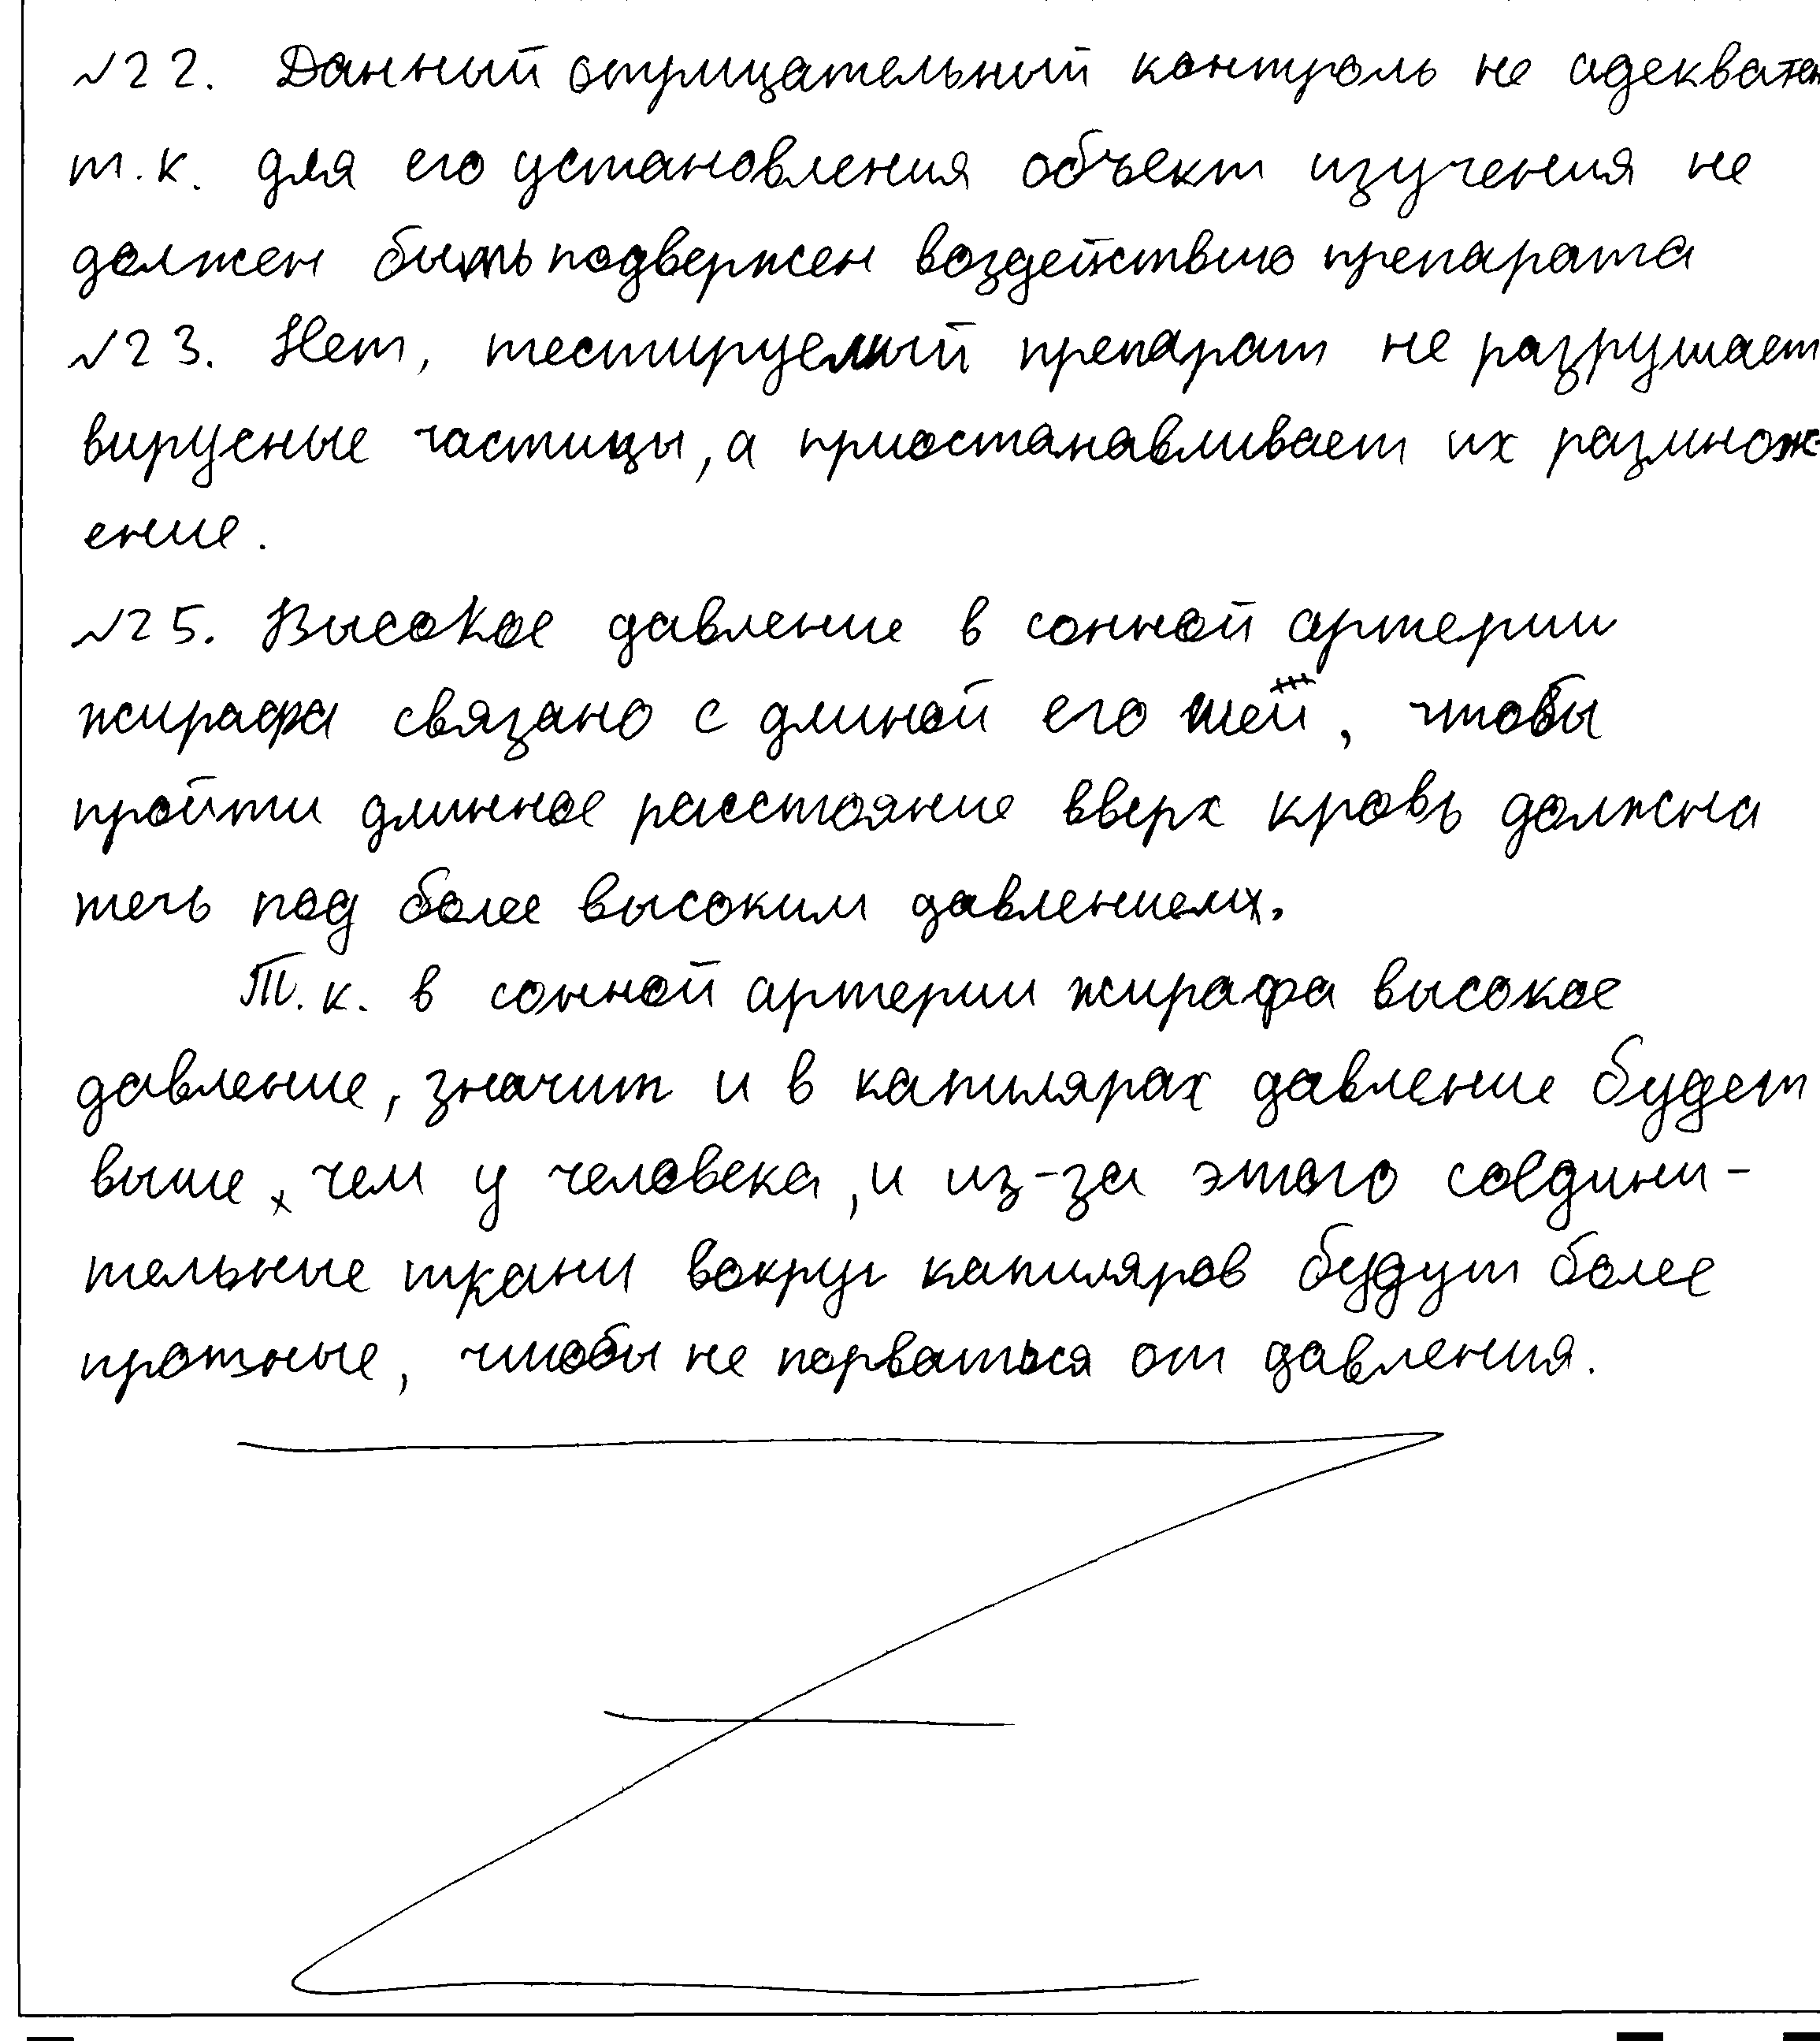 №22. Данный отрицательный контроль не адекватен
т.к. для его установления объект изучения не
должен быть подвержен воздействию препарата
№23. Нет, тестируемый препарат не разрушает
вирусные частицы, а приостанавливает их размнож-
ение.
№25. Высокое давление в сонной артерии
жирафа связано с длиной его шеи, чтобы
пройти длинное расстояние вверх кровь должна
течь под более высоким давлением.
Т.к. в сонной артерии жирафа высокое
давление, значит и в капилярах давление будет
выше, чем у человека, и из-за этого соедини-
тельные ткани вокруг капиляров будут более
протные, чтобы не порваться от давления.